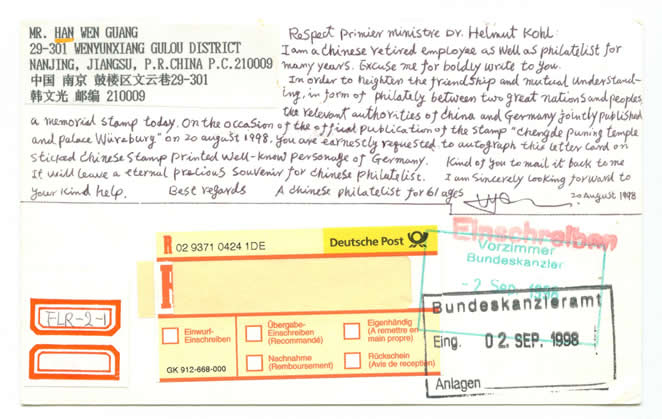 MR. HAN WEN GUANG
29-301 WENYUNXIANG GULOU DISTRICT
NANJING, JIANGSU, P.R.CHINA P.C.210009
中国 南京 鼓楼区文云巷29-301
韩文光 邮编 210009
Respect primier ministre Dr. Helmut Kohl:
I am a chinese retired employee as well as philatelist for
many years. Excuse me for boldly write to you.
In order to heighten the friendship and mutual understand-
ing, in form of philately between two great nations and peoples,
the relevant authorities of china and Germany jointly published
a memorial stamp today. On the occasion of the official publication of the stamp "chengde puning temple
and palace Würzburg" on 20 august 1998, you are earnestly requested to autograph this letter card on
sticked chinese stamp printed well-know personage of Germany. Kind of you to mail it back to me
It will leave a eternal precious souvenir for chinese philatelist. I am sincerely looking forward to
your kind help. Best regards A chinese philatelist for 61 ages
20 August 1998
R 02 9371 0424 1DE
Deutsche Post
R
Einwurf-
Einschreiben
Übergabe-
Einschreiben
(Recommandé)
Eigenhändig
(A remettre en
main propre)
Nachnahme
(Remboursement)
Rückschein
(Avis de reception)
GK 912-668-000
FLR-2-1
Einschreiben
Vorzimmer
Bundeskanzler
- 2 Sep. 1998
Bundeskanzleramt
Eing. 02. SEP. 1998
Anlagen